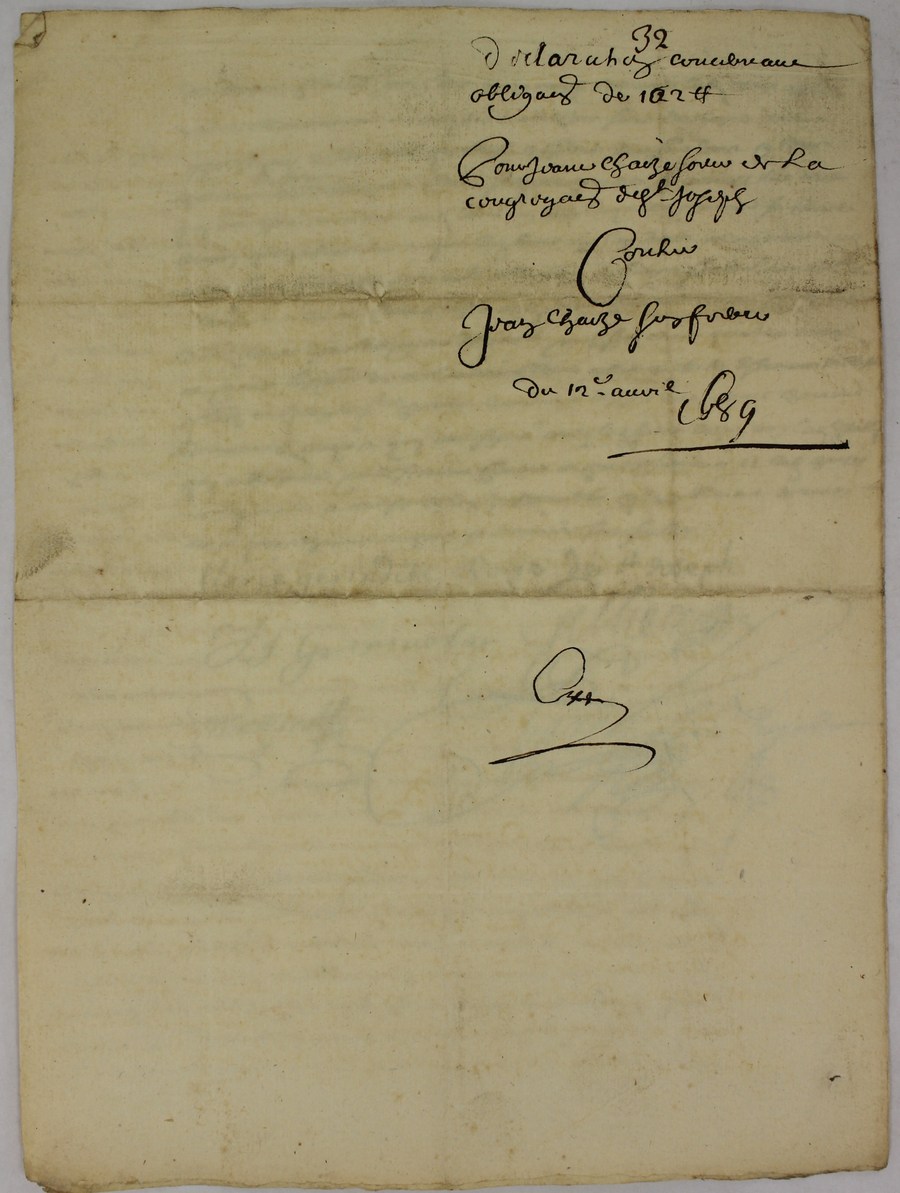 32
declaration concernant
obliga͠on de 162 ℔
Pour Jeane Chaize soeur de la
congrega͠on de St Joseph
Contre
Jean Chaize son frere
du 12e auril 1689